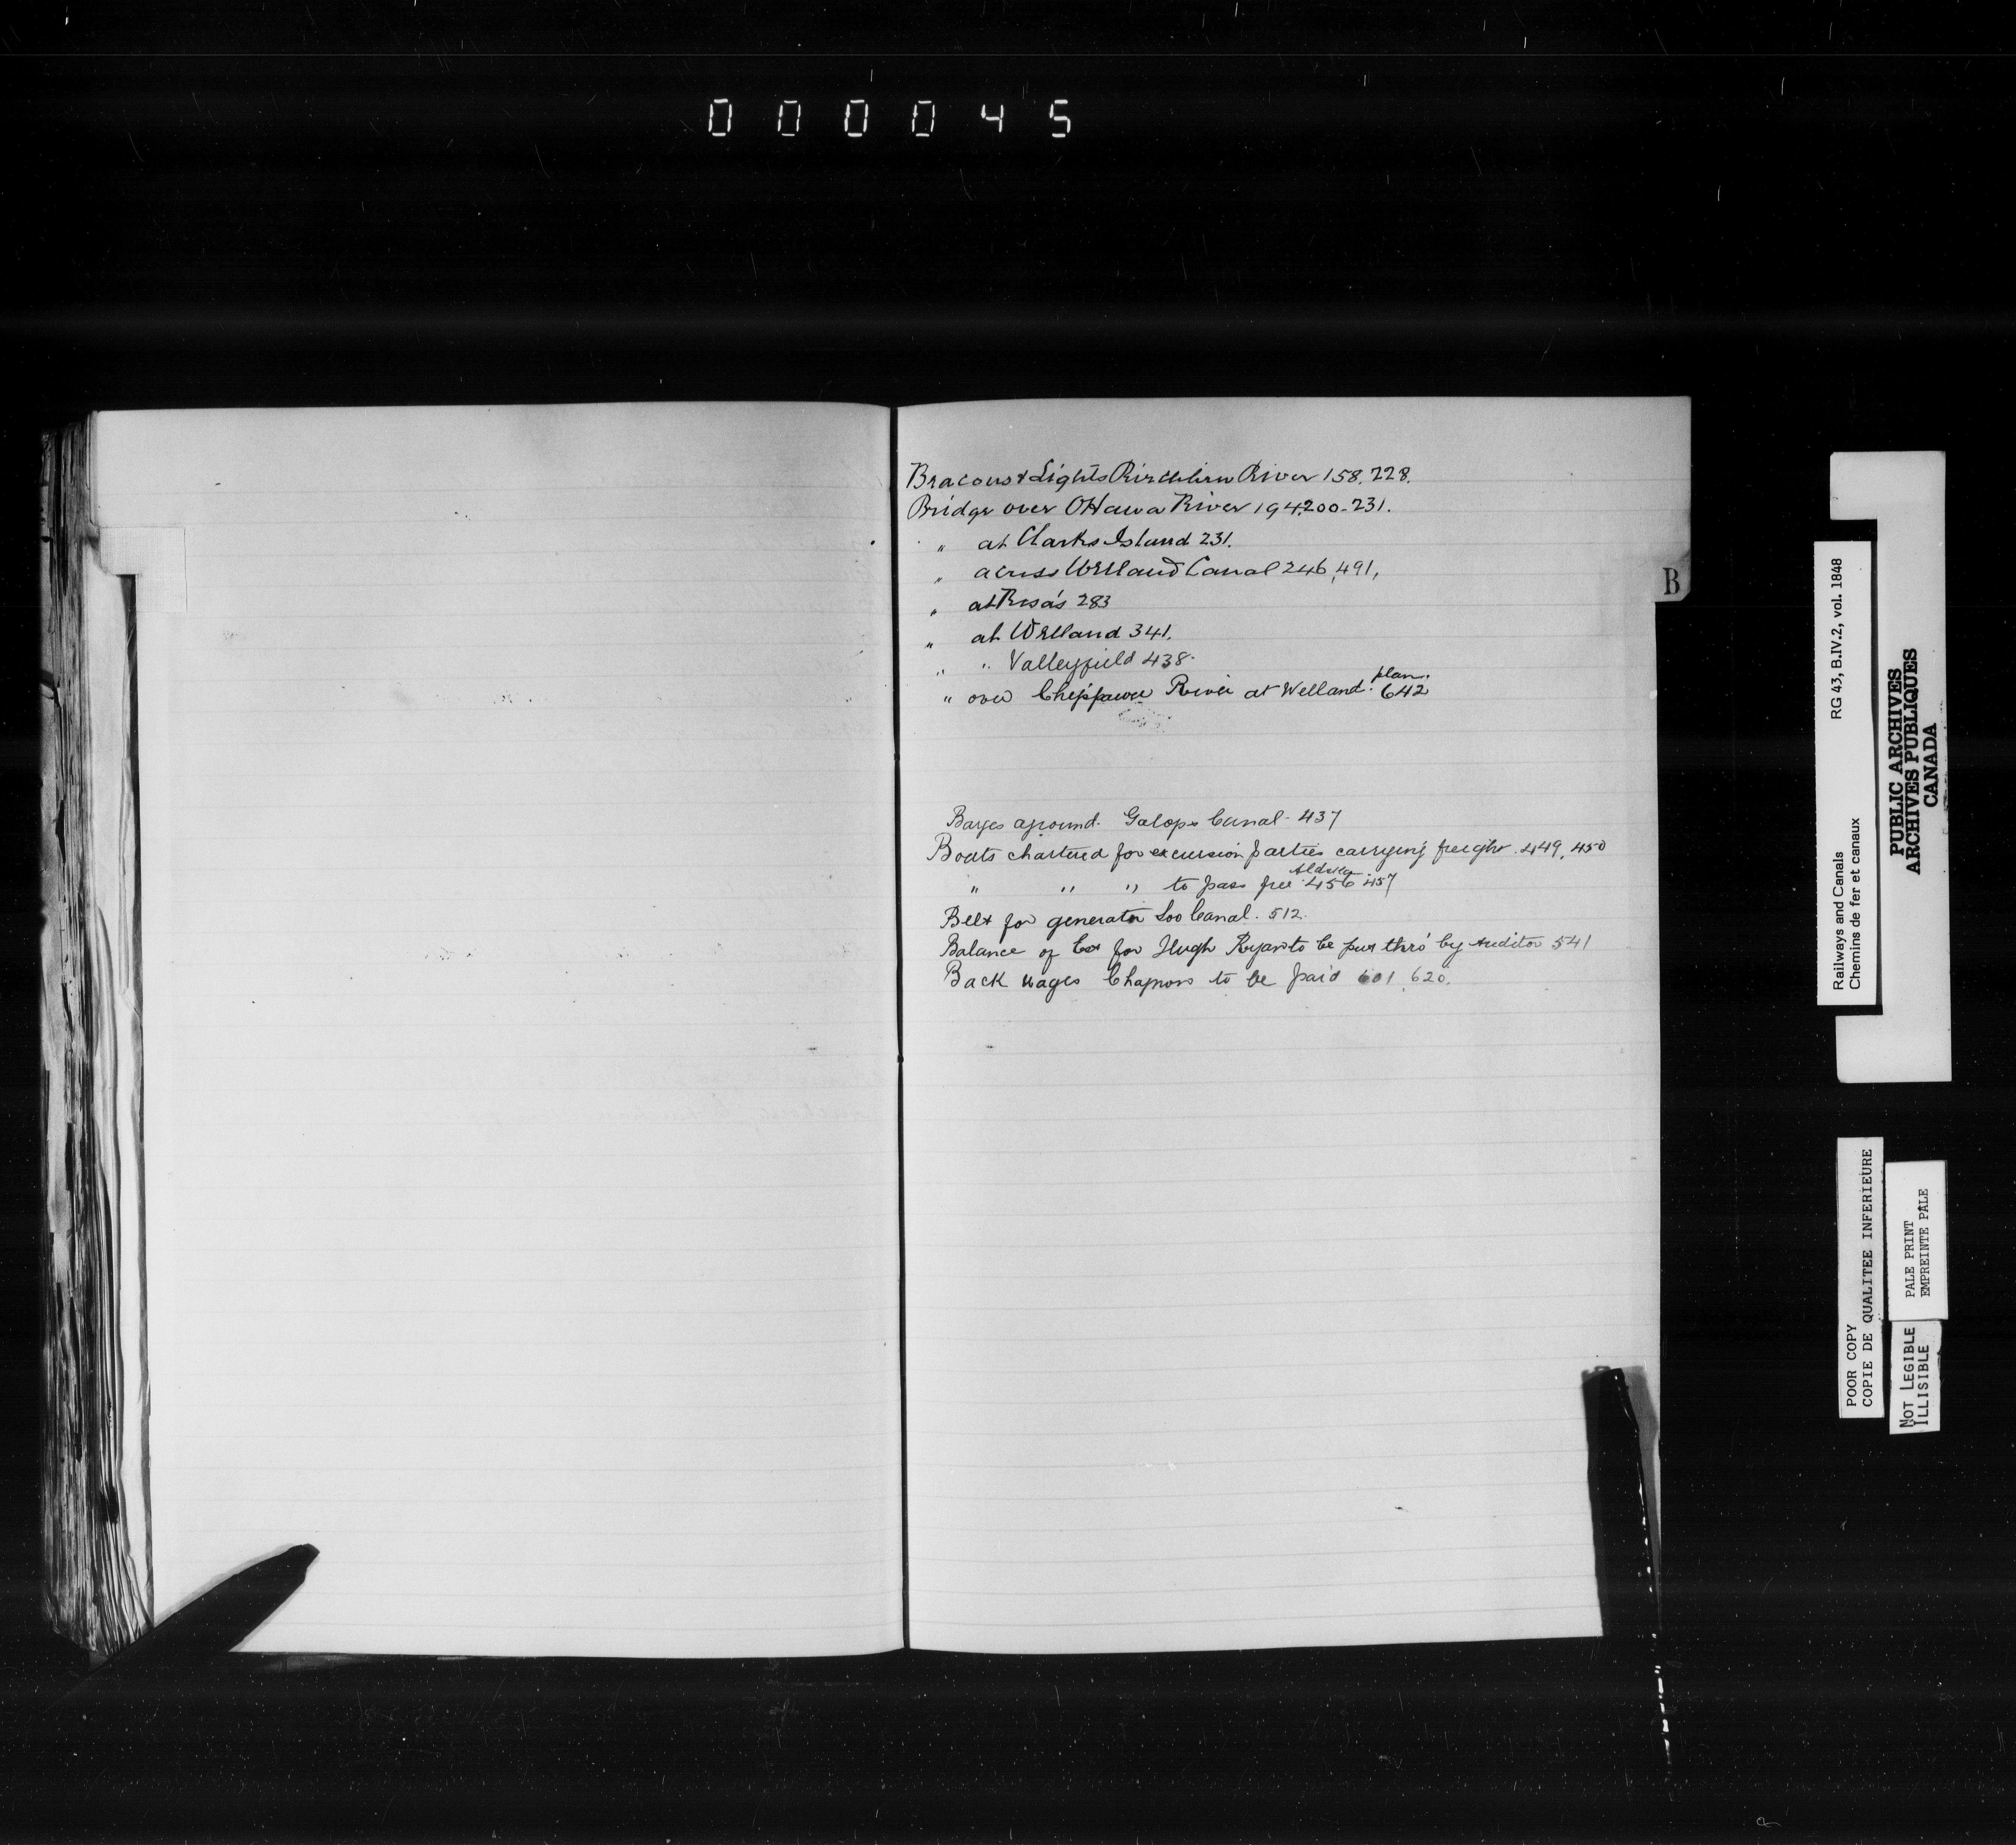 000045
Beacons & Lights Richelieu River 158. 228.
Bridge over Ottawa River 194.200-231.
" at Clarks Island 231.
" across Welland Canal 246, 491,
" at 283
" at Welland 341.
" " Valleyfield 438.
plan.
" over Chippawa River at Welland. 642
B
Barges aground. Galops Canal - 437
Boats chartered for excursion parties carrying freight. 449, 450
" " " to pass free 456 457
Belt for generator Soo Canal. 512.
Balance of for Hugh Ryan to be put thro' by Auditor 541
Back wages to be paid 601, 620.
Railways and Canals RG 43, B.IV.2, vol. 1848
Chemins de fer et canaux
PUBLIC ARCHIVES
ARCHIVES PUBLIQUES
CANADA
POOR COPY
COPIE DE QUALITEE INFERIEURE
PALE PRINT
EMPREINTE PÂLE
NOT LEGIBLE
ILLISIBLE